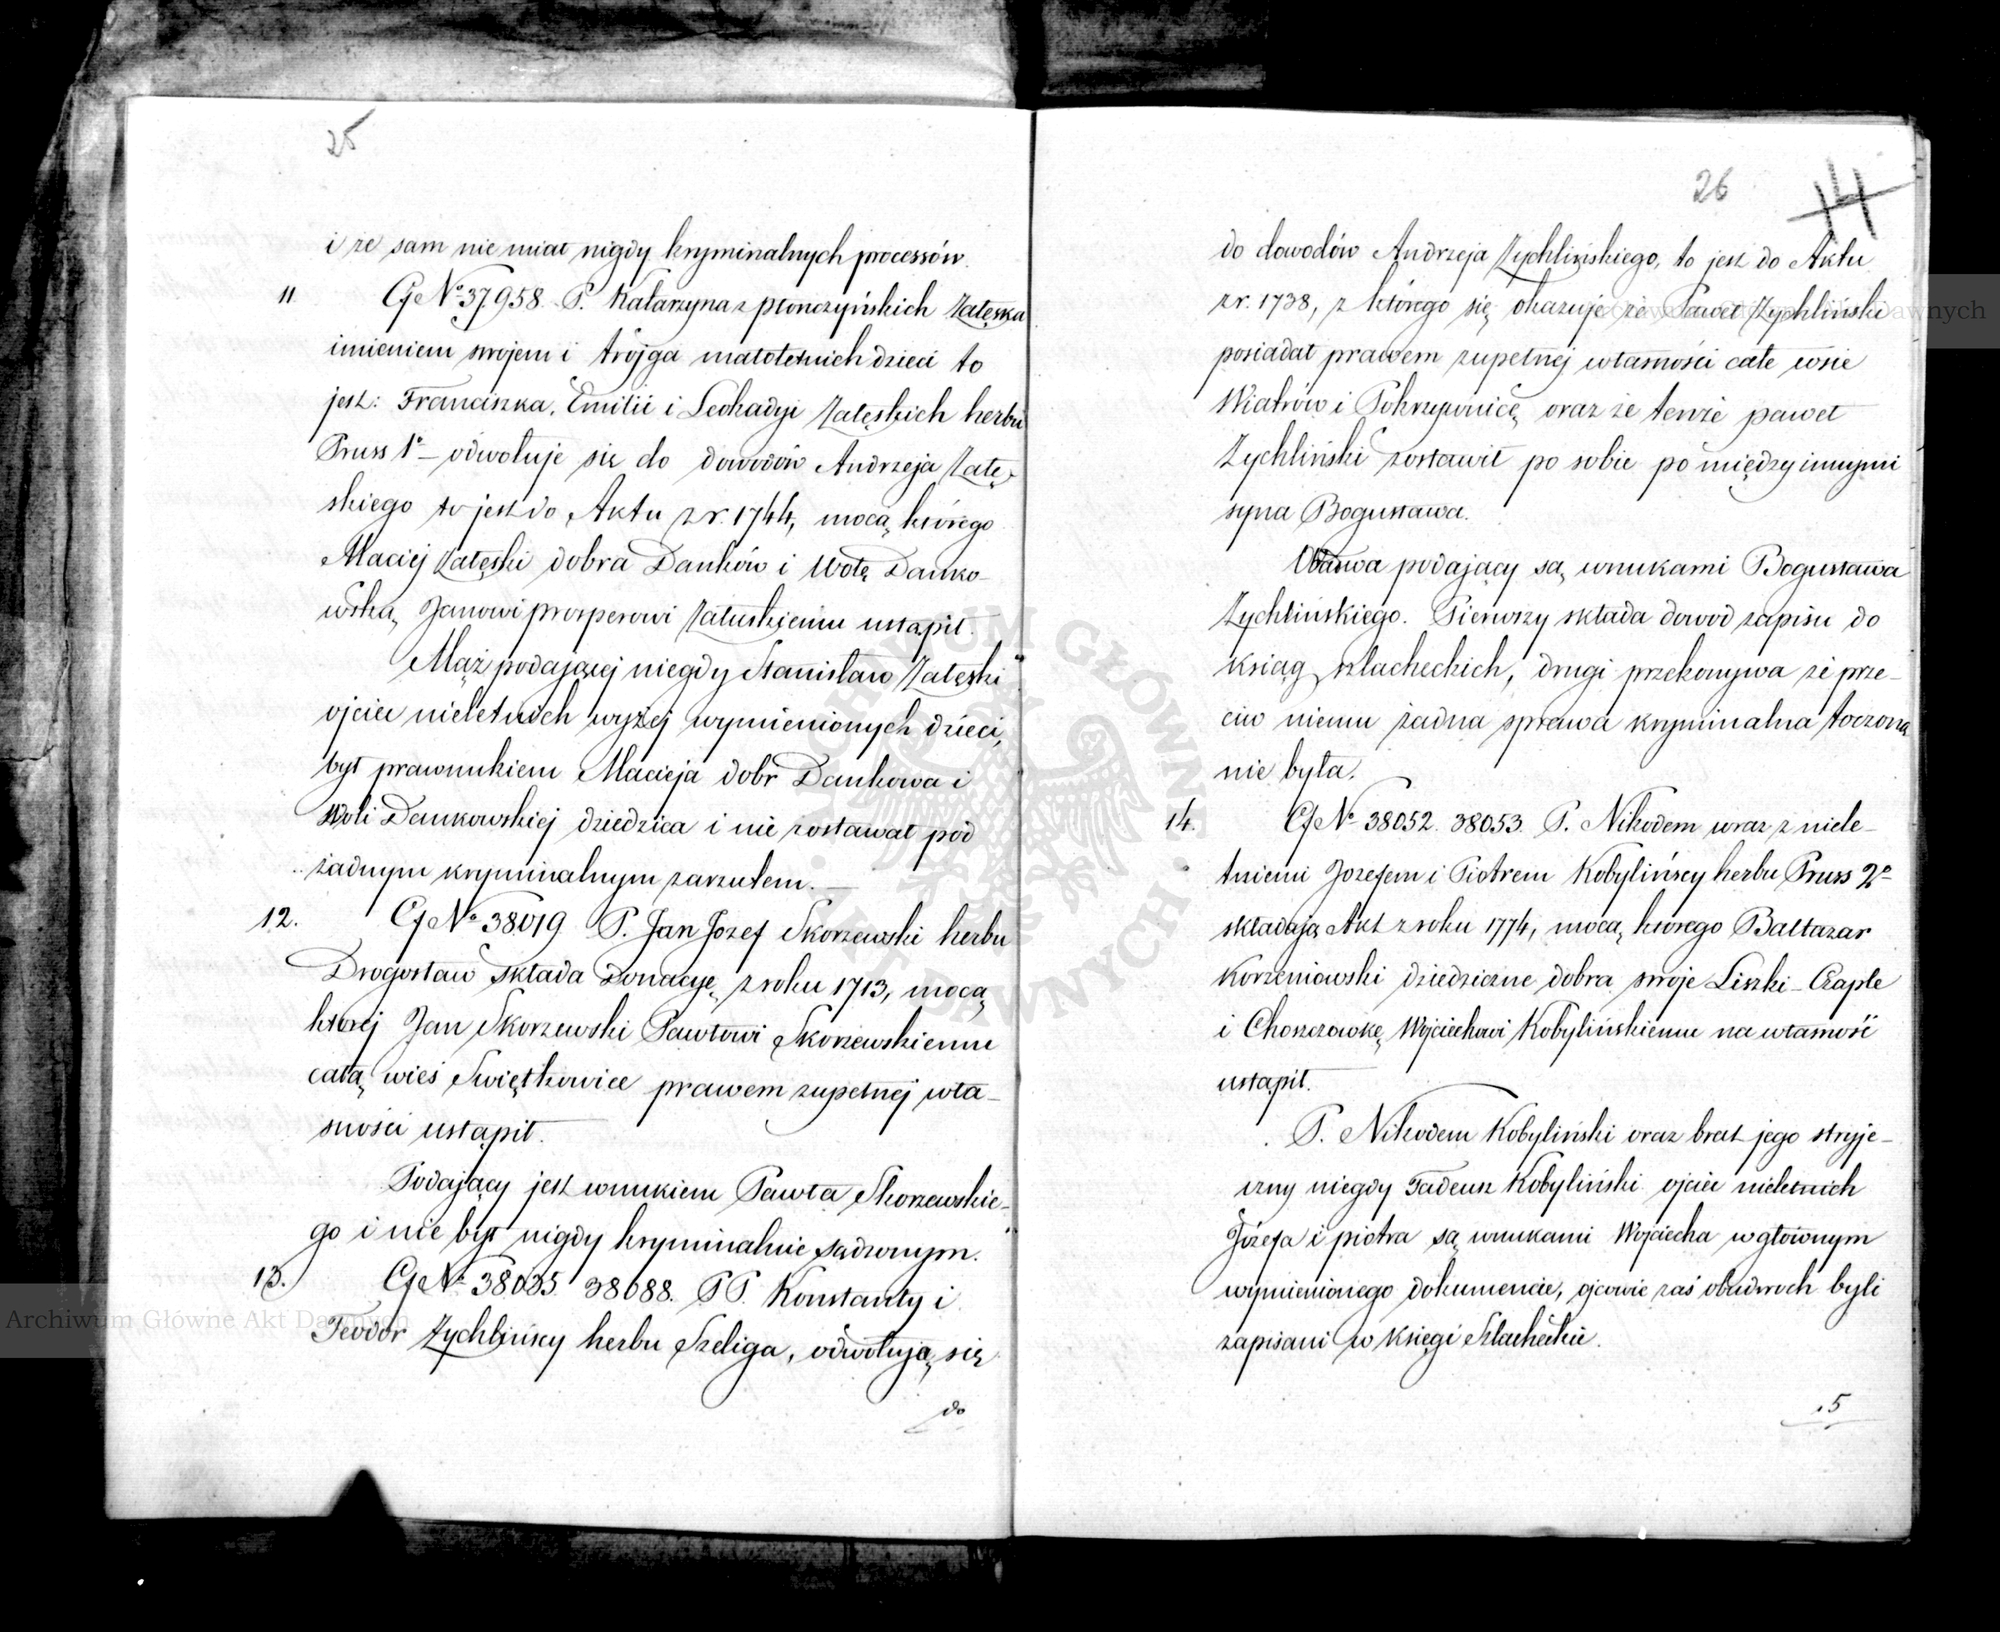 25
i że sam nie miał nigdy kryminalnych processów.
11. Cf No 37958. P. Katarzyna z Płonczyńskich Załęska
imieniem swojem i trójga małoletnich dzieci to
jest: Franciszka, Emilii i Leokadyi Załęskich herbu
Pruss 1o – odwołuje się do dowodów Andrzeja Załę-
skiego to jest do Aktu z r. 1744, mocą którego
Maciej Załęski dobra Danków i Wolę Danko-
wską, Janowi Prosperowi Załuskiemu ustąpił.
Mąż podającej niegdy Stanisław Załęski
ojciec nieletnich wyżej wymienionych dzieci,
był prawnukiem Macieja dobr Dankowa i
Woli Dankowskiej dziedzica i nie zostawał pod
żadnym kryminalnym zarzutem. —
12. Cf No 38019 P. Jan Jozef Skorzewski herbu
Drogosław składa Donacyę z roku 1713, mocą
ktorej Jan Skorzewski Pawłowi Skorzewskiemu
całą wieś Swiętkowice prawem zupełnej wła-
sności ustąpił.
Podający jest wnukiem Pawła Skorzewskie-
go i nie był nigdy kryminalnie sądzonym.
13. Cf No 38035. 38088. PP. Konstanty i
Teodor Zychlińscy herbu Szeliga, odwołują się
do
26
14
do dowodów Andrzeja Zychlińskiego, to jest do Aktu
z r. 1738, z którego się okazuje że Paweł Zychliński
posiadał prawem zupełnej własności całe wsie
Wiatrów i Pokrzywnicę oraz że tenże Paweł
Zychliński zostawił po sobie pomiędzy innymi
syna Bogusława.
Obadwa podający są wnukami Bogusława
Zychlińskiego. Pierwszy składa dowod zapisu do
ksiąg szlacheckich, drugi przekonywa że prze-
ciw niemu żadna sprawa kryminalna toczoną
nie była.
14. Cf No 38052. 38053. P. Nikodem wraz z niele-
tniemi Jozefem i Piotrem Kobylińscy herbu Pruss 2o
składają Akt z roku 1774, mocą którego Baltazar
Korzeniowski dziedziczne dobra swoje Liszki – Czaple
i Choszczowkę Wojciechowi Kobylińskiemu na własność
ustąpił.
P. Nikodem Kobyliński oraz brat jego stryje-
czny niegdy Tadeusz Kobyliński ojciec nieletnich
Józefa i Piotra są wnukami Wojciecha w głównym
wymienionego dokumencie, ojcowie zaś obudwoch byli
zapisani w Księgi Szlacheckie.
15
Archiwum Główne Akt Dawnych
ARCHIWUM GŁÓWNE AKT DAWNYCH